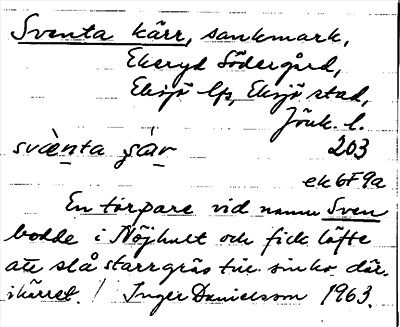 Sventa kärr, sankmark,
Ekeryd Södergård,
Eksjö lfs, Eksjö stad,
Jönk. l.
203
ek6F9a
En torpare vid namn Sven
bodde i Nöjhult och fick löfte
att slå starrgräs till sin ko där
i kärret. / Inger Danielsson 1963.